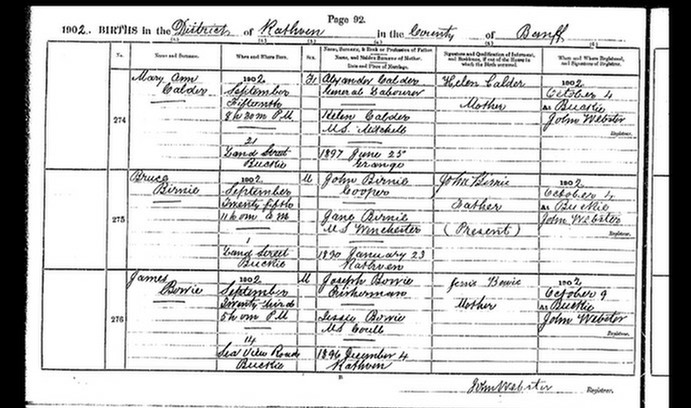 Page 92.
1902. BIRTHS in the District of Rathven in the County of Banff
No. Name and Surname. When and Where Born. Sex. Name, Surname, & Rank or Profession of Father. Name, and Maiden Surname of Mother. Date and Place of Marriage. Signature and Qualification of Informant, and Residence, if out of the House in which the Birth occurred. When and Where Registered, and Signature of Registrar.
274
Mary Ann
Calder
1902
September
Fifteenth
8 h 30 m P M
21
Land Street
Buckie
F
Alexander Calder
General Labourer
Helen Calder
M.S. Mitchell
1897 June 25
Grange
Helen Calder
Mother
1902
October 4
At Buckie
John Webster
Registrar.
275
Bruce
Birnie
1902
September
Twenty fifth
11 h 0 m
1
Land Street
Buckie
M
John Birnie
Cooper
Jane Birnie
M S Winchester
1890 January 23
Rathven
John Birnie
Father
(Present)
1902
October 4
At Buckie
John Webster
Registrar.
276
James
Bowie
1902
September
Twenty third
5 h 0 m P M
14
Sea View Road
Buckie
M
Joseph Bowie
Fisherman
Jessie Bowie
MS Coull
1896 December 4
Rathven
Bowie
Mother
1902
October 9
At Buckie
John Webster
Registrar.
John Webster Registrar.